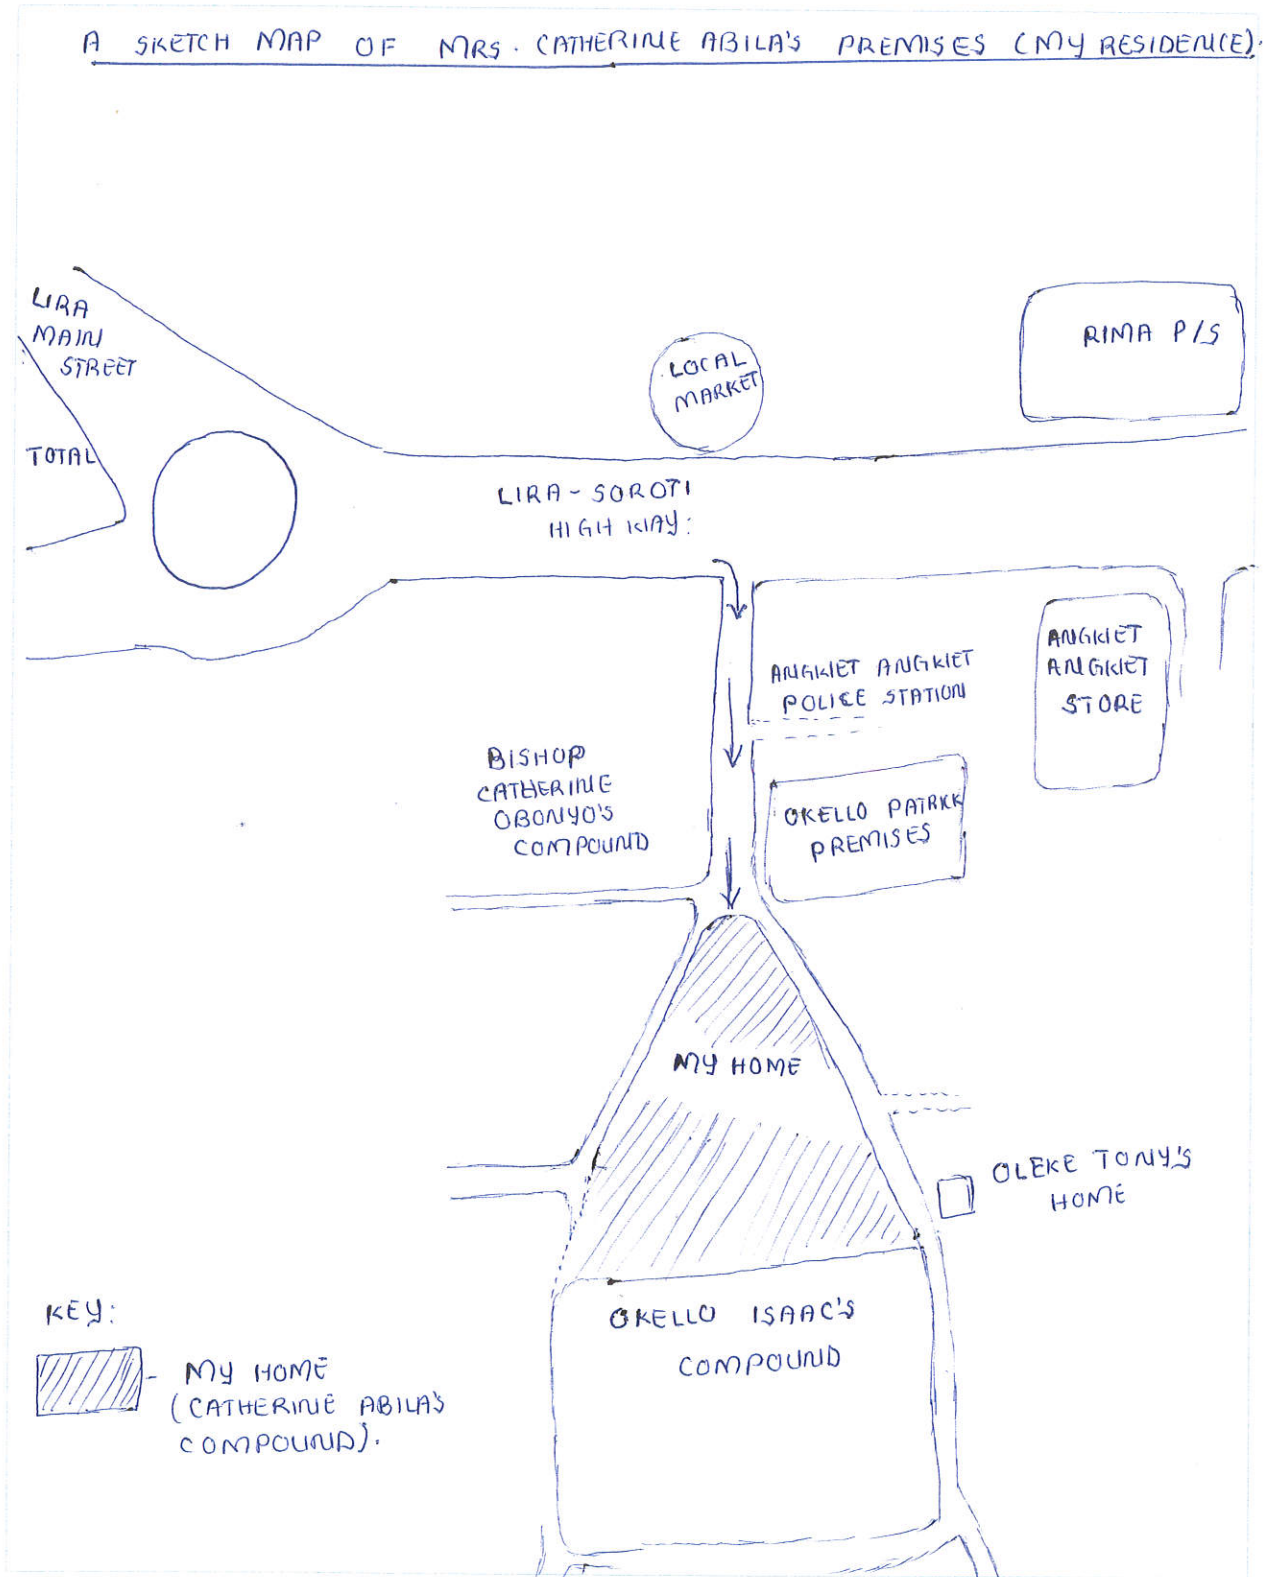 A SKETCH MAP OF MRS. CATHERINE ABILA'S PREMISES (MY RESIDENCE).
LIRA
MAIN
STREET
TOTAL
LOCAL
MARKET
RIMA P/S
LIRA - SOROTI
HIGH WAY:
ANGWET ANGWET
POLICE STATION
ANGWET
ANGWET
STORE
BISHOP
CATHERINE
OBONYO'S
COMPOUND
OKELLO PATRICK
PREMISES
MY HOME
OLEKE TONY'S
HOME
OKELLO ISAAC'S
COMPOUND
KEY:
- MY HOME
(CATHERINE ABILA'S
COMPOUND).